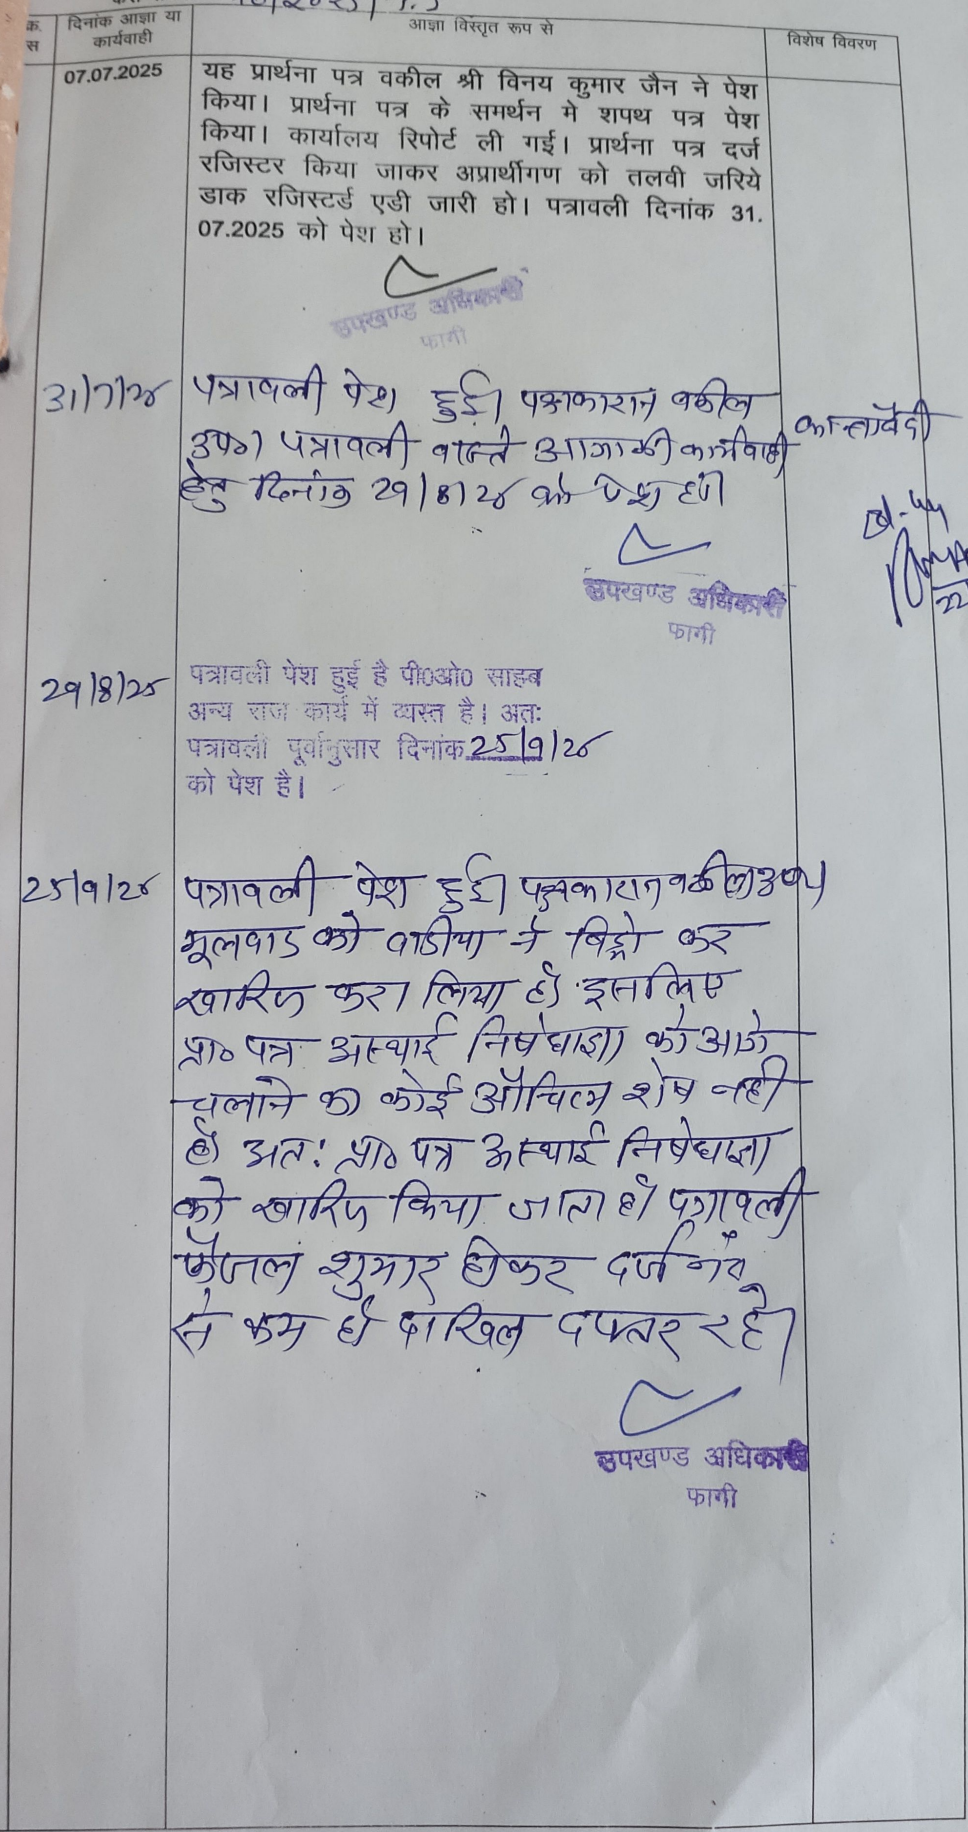 क्र. स
दिनांक आज्ञा या कार्यवाही
आज्ञा विस्तृत रूप से
विशेष विवरण
07.07.2025
यह प्रार्थना पत्र वकील श्री विनय कुमार जैन ने पेश
किया। प्रार्थना पत्र के समर्थन मे शपथ पत्र पेश
किया। कार्यालय रिपोर्ट ली गई। प्रार्थना पत्र दर्ज
रजिस्टर किया जाकर अप्रार्थीगण को तलवी जरिये
डाक रजिस्टर्ड एडी जारी हो। पत्रावली दिनांक 31.
07.2025 को पेश हो।
उपखण्ड अधिकारी
फागी
31/7/25 पत्रावली पेश हुई। पक्षकारान वकील
उप०। पत्रावली वास्ते आगामी कार्यवाही
हेतु दिनांक 29/8/25 को पेश हो।
उपखण्ड अधिकारी
फागी
29/8/25 पत्रावली पेश हुई है पी0ओ0 साहब
अन्य राज कार्य में व्यस्त है। अतः
पत्रावली पूर्वानुसार दिनांक 25/9/25
को पेश है।
25/9/25 पत्रावली पेश हुई। पक्षकारान वकील उप०।
मूलवाद को वादीया ने विड्रो कर
खारिज करा लिया है। इसलिए
प्रा० पत्र अस्थाई निषेधाज्ञा को आगे
चलाने का कोई औचित्य शेष नही
है। अत: प्रा० पत्र अस्थाई निषेधाज्ञा
को खारिज किया जाता है। पत्रावली
फैजल शुमार होकर दर्ज नं०
से कम हो दाखिल दफ्तर रहे।
उपखण्ड अधिकारी
फागी